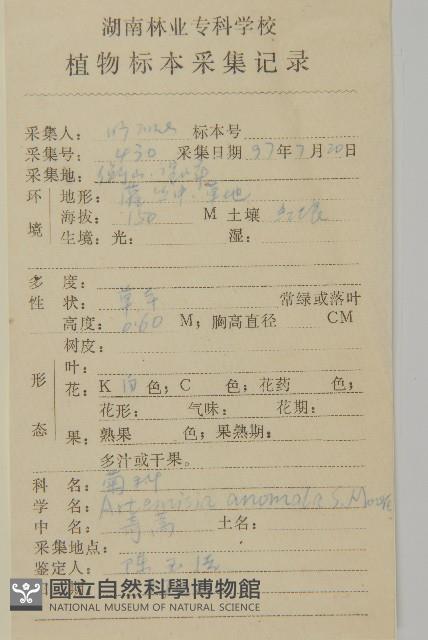 湖南林业专科学校
植物标本采集记录
采集人： 标本号
采集号：430 采集日期97年7月20日
采集地：衡山
环 地形： 草地
海拔：150 M 土壤 红壤
境 生境：光： 湿：
多 度：
性 状：草本 常绿或落叶
高度：0.60 M；胸高直径 CM
树皮：
形 叶：
花：K 白 色；C 色；花药 色；
花形： 气味： 花期：
态 果：熟果 色；果熟期：
多汁或干果。
科 名：菊科
学 名：Artemisia anomala S. Moore
中 名：青蒿 土名：
采集地点：
鉴定人：陈
國立自然科學博物館
NATIONAL MUSEUM OF NATURAL SCIENCE